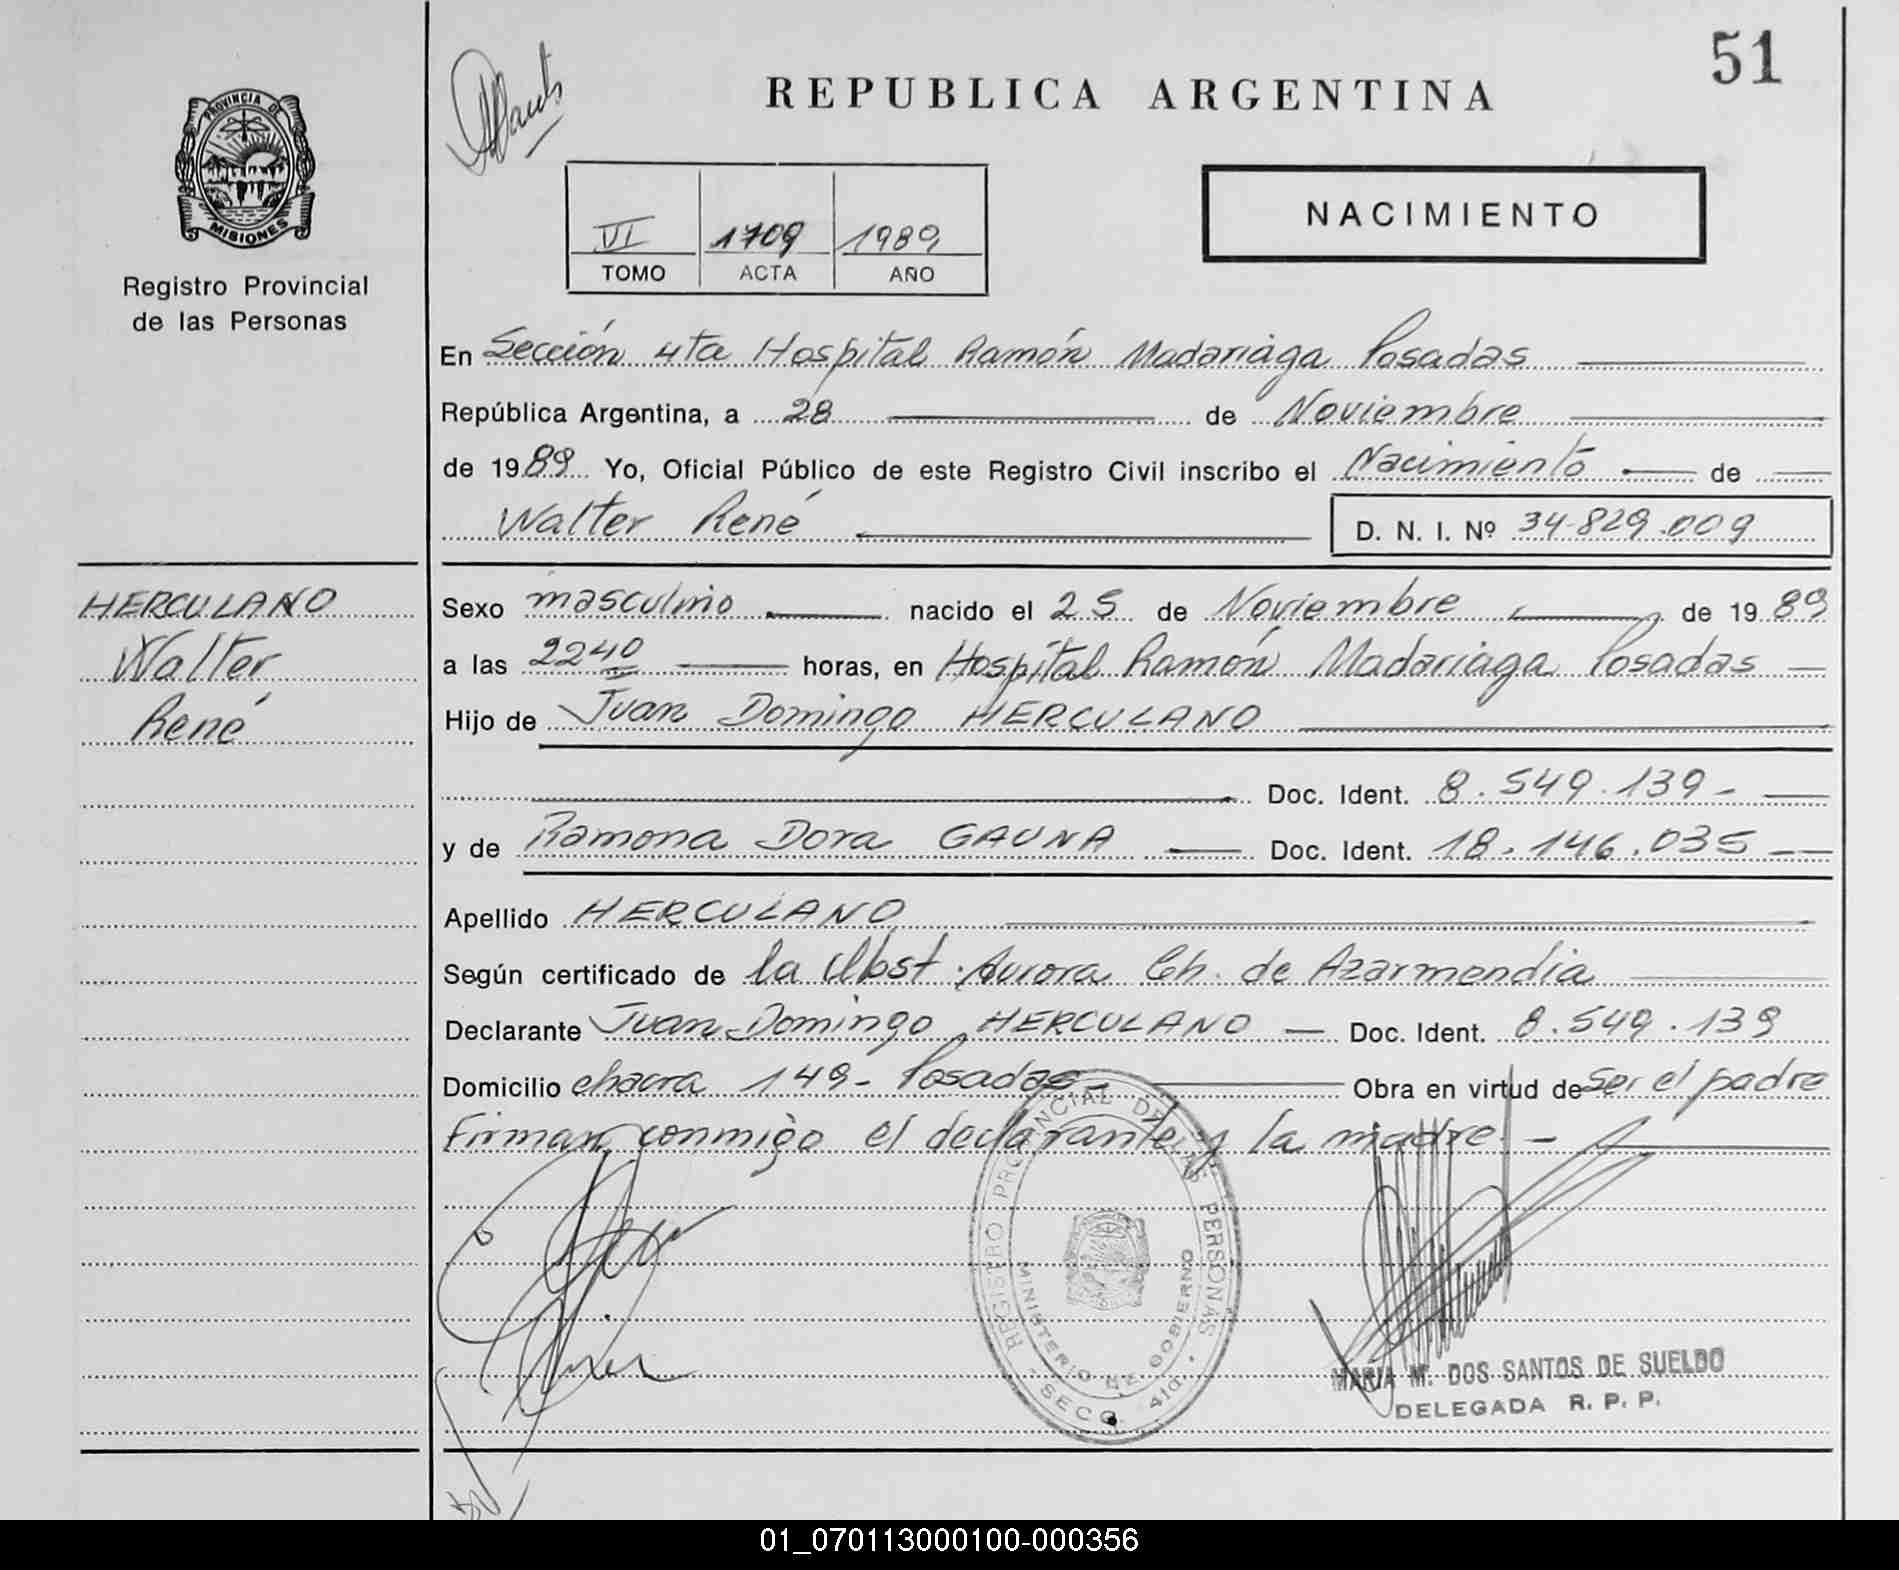 51
REPUBLICA ARGENTINA
PROVINCIA DE
MISIONES
Registro Provincial
de las Personas
NACIMIENTO
VI 1709 1989
TOMO ACTA AÑO
En Sección 4ta Hospital Ramón Madariaga Posadas
República Argentina, a 28 de Noviembre
de 1989 Yo, Oficial Público de este Registro Civil inscribo el Nacimiento de
Walter René D. N. I. Nº 34.829.009
HERCULANO
Walter
René
Sexo masculino nacido el 25 de Noviembre de 1989
a las 2240 horas, en Hospital Ramón Madariaga Posadas
Hijo de Juan Domingo HERCULANO
Doc. Ident. 8.549.139-
y de Ramona Dora GAUNA Doc. Ident. 18.146.035
Apellido HERCULANO
Según certificado de la Obst. Aurora Ch. de Azarmendia
Declarante Juan Domingo HERCULANO Doc. Ident. 8.549.139
Domicilio chacra 149- Posadas- Obra en virtud de Ser el padre
Firman conmigo el declarante y la madre.-
REGISTRO PROVINCIAL DE LAS PERSONAS
MINISTERIO DE GOBIERNO
- SECC. 4ta. -
MARIA M. DOS SANTOS DE SUELDO
DELEGADA R. P. P.
01_070113000100-000356